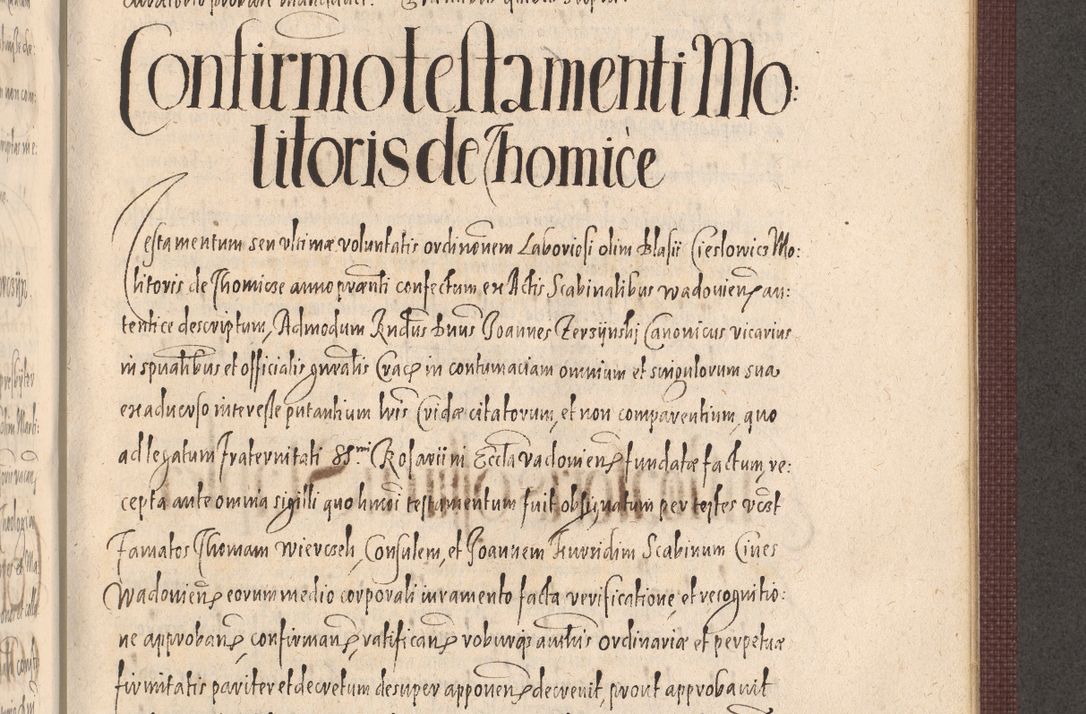 Confirmo testamenti Mo:
litoris de Thomice
Testamentum seu vltimæ voluntatis ordinõnem Laboriosi olim Blasii Cieslowicz Mo:
litoris de Thomicze anno præsenti confectum ex Actis Scabinalibus wadovien au:
tentice descriptum, Admodum Rndus Dnus Joannes Zerzÿnskj Canonicus vicarius
in spualibus et officialis gnralis Crac in contumaciam omnium et singulorum sua
ex aduerso interesse putantium lris Cridæ citatorum, et non comparentium, quo
ad legatum fraternitati SS.mi Rosarii in Eccla vadovien fundatæ factum, re:
cepta ante omnia sigilli quo hmoi testamentum fuit obsignatum per testes vcst
Famatos Thomam wierczek, Consulem, et Joannem Scabinum Ciues
wadovien eorum medio corporali iuramento facta verificatione, et recognitio:
ne approban, confirman, ratifican roburq authis ordinariæ et perpetuæ
firmitatis pariter et decretum desuper apponen decrevit, prout approbauit